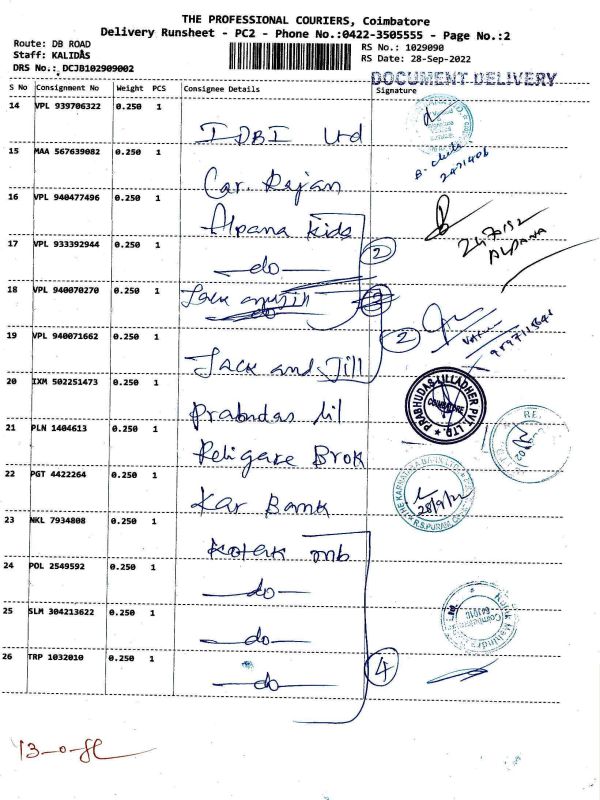 THE PROFESSIONAL COURIERS, Coimbatore
Delivery Runsheet - PC2 - Phone No.:0422-3505555 - Page No.:2
Route: DB ROAD
RS No.: 1029090
Staff: KALIDAS
RS Date: 28-Sep-2022
DRS No.: DCJB102909002
DOCUMENT DELIVERY
S No Consignment No Weight PCS Consignee Details Signature
14 VPL 939706322 0.250 1
IDBI Ltd
15 MAA 567639082 0.250 1
2471406
Car. Rajan
16 VPL 940477496 0.250 1
Alpana kids
2470152
ALPANA
17 VPL 933392944 0.250 1
do
2
18 VPL 940070270 0.250 1
19 VPL 940071662 0.250 1
2
Jack and Jill
20 IXM 502251473 0.250 1
PRABHUDAS LILLADHER PVT. LTD.
COIMBATORE
Prabudas lil
21 PLN 1404613 0.250 1
Religare Brok
22 PGT 4422264 0.250 1
THE KARNATAKA BANK LTD
28/9/22
R.S.PURAM
Kar Bank
23 NKL 7934808 0.250 1
Kotak mb
24 POL 2549592 0.250 1
do
25 SLM 304213622 0.250 1
Kotak Mahindra
Coimbatore
641010
do
26 TRP 1032010 0.250 1
do
4